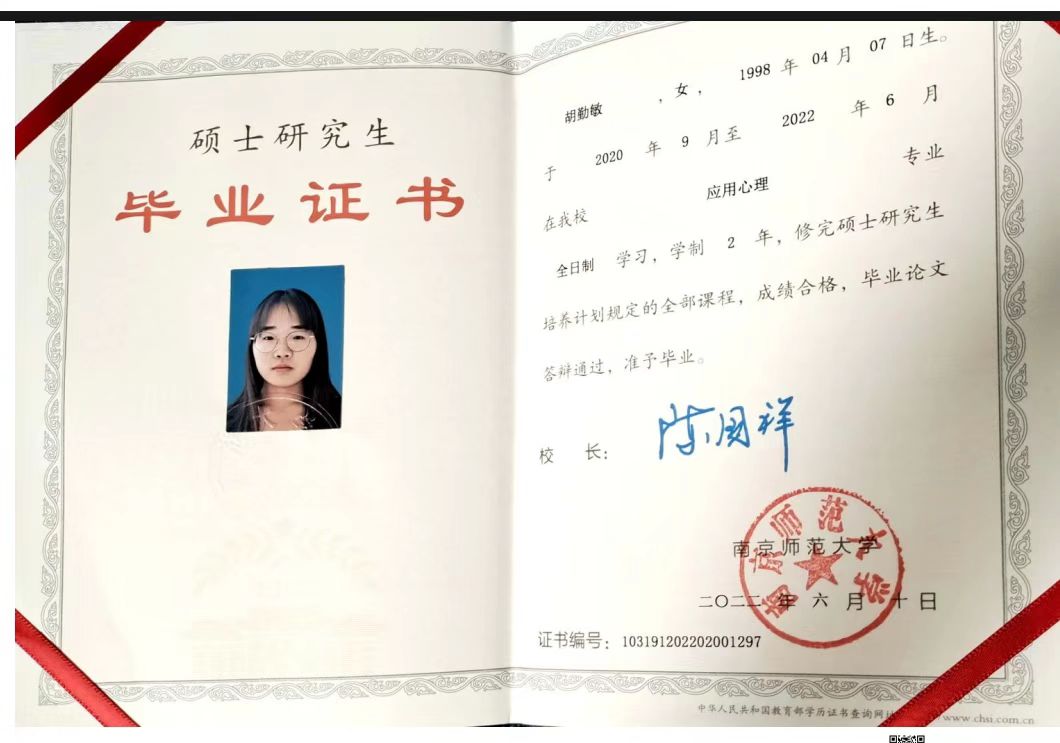 硕士研究生
毕业证书
胡勤敏 , 女, 1998 年 04 月 07 日生。
于 2020 年 9 月至 2022 年 6 月
在我校 应用心理 专业
全日制 学习, 学制 2 年, 修完硕士研究生
培养计划规定的全部课程, 成绩合格, 毕业论文
答辩通过, 准予毕业。
校 长: 陈国祥
南京师范大学
南京师范大学
二〇二二年六月十日
证书编号: 103191202202001297
中华人民共和国教育部学历证书查询网址 www.chsi.com.cn